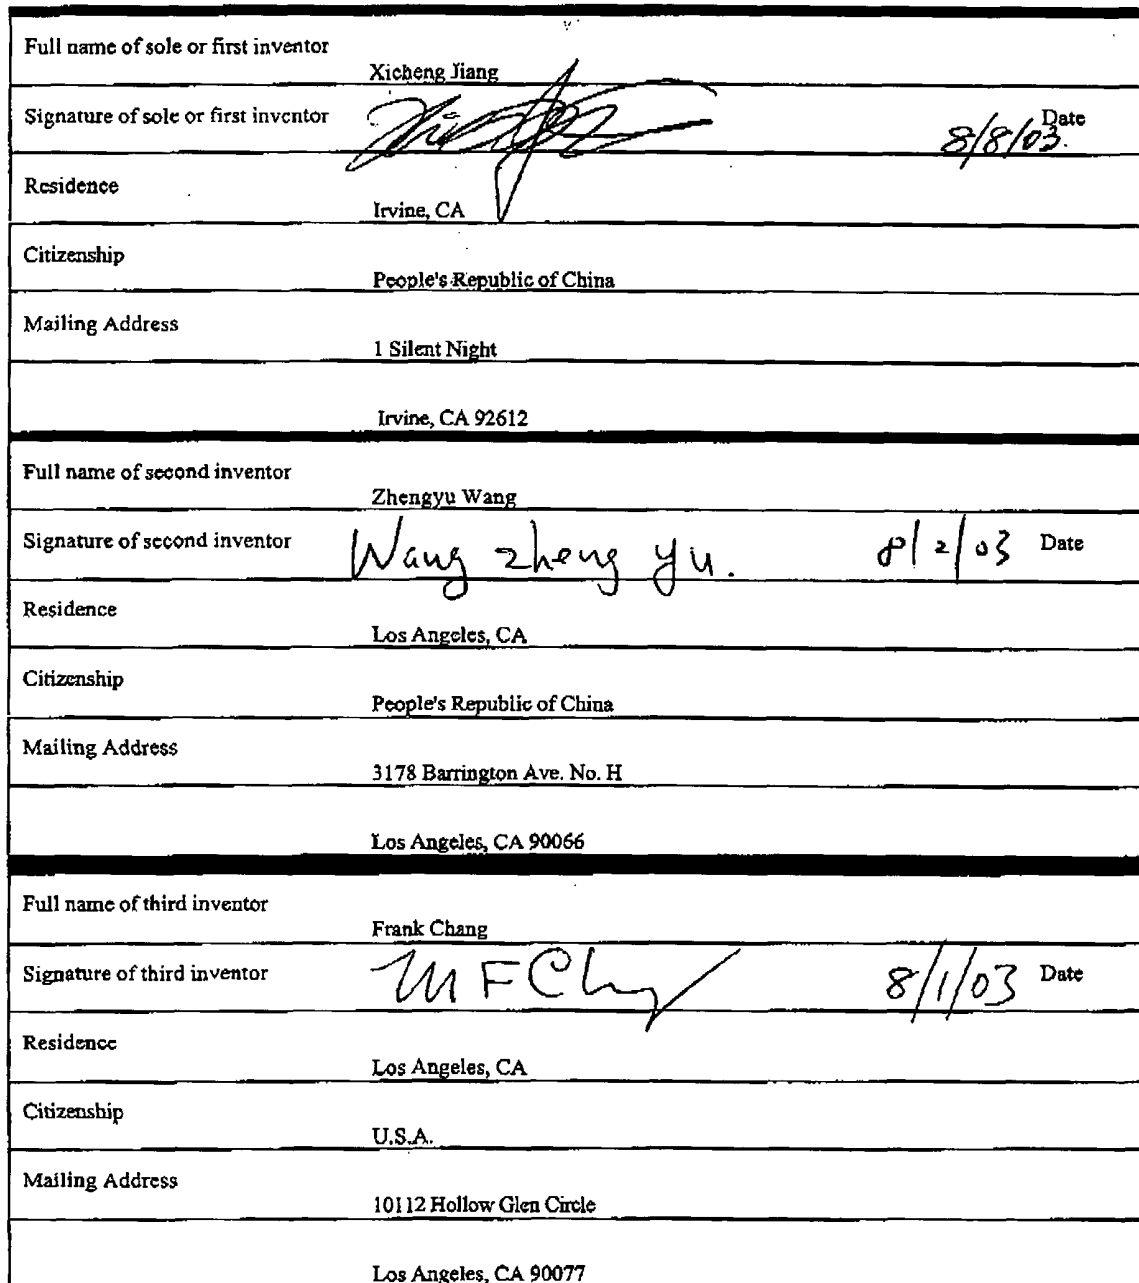 Full name of sole or first inventor
Xicheng Jiang
Signature of sole or first inventor
Date
8/8/03.
Residence
Irvine, CA
Citizenship
People's Republic of China
Mailing Address
1 Silent Night
Irvine, CA 92612
Full name of second inventor
Zhengyu Wang
Signature of second inventor Wang zheng yu. 8/2/03 Date
Residence
Los Angeles, CA
Citizenship
People's Republic of China
Mailing Address
3178 Barrington Ave. No. H
Los Angeles, CA 90066
Full name of third inventor
Frank Chang
Signature of third inventor M F Ch 8/1/03 Date
Residence
Los Angeles, CA
Citizenship
U.S.A.
Mailing Address
10112 Hollow Glen Circle
Los Angeles, CA 90077